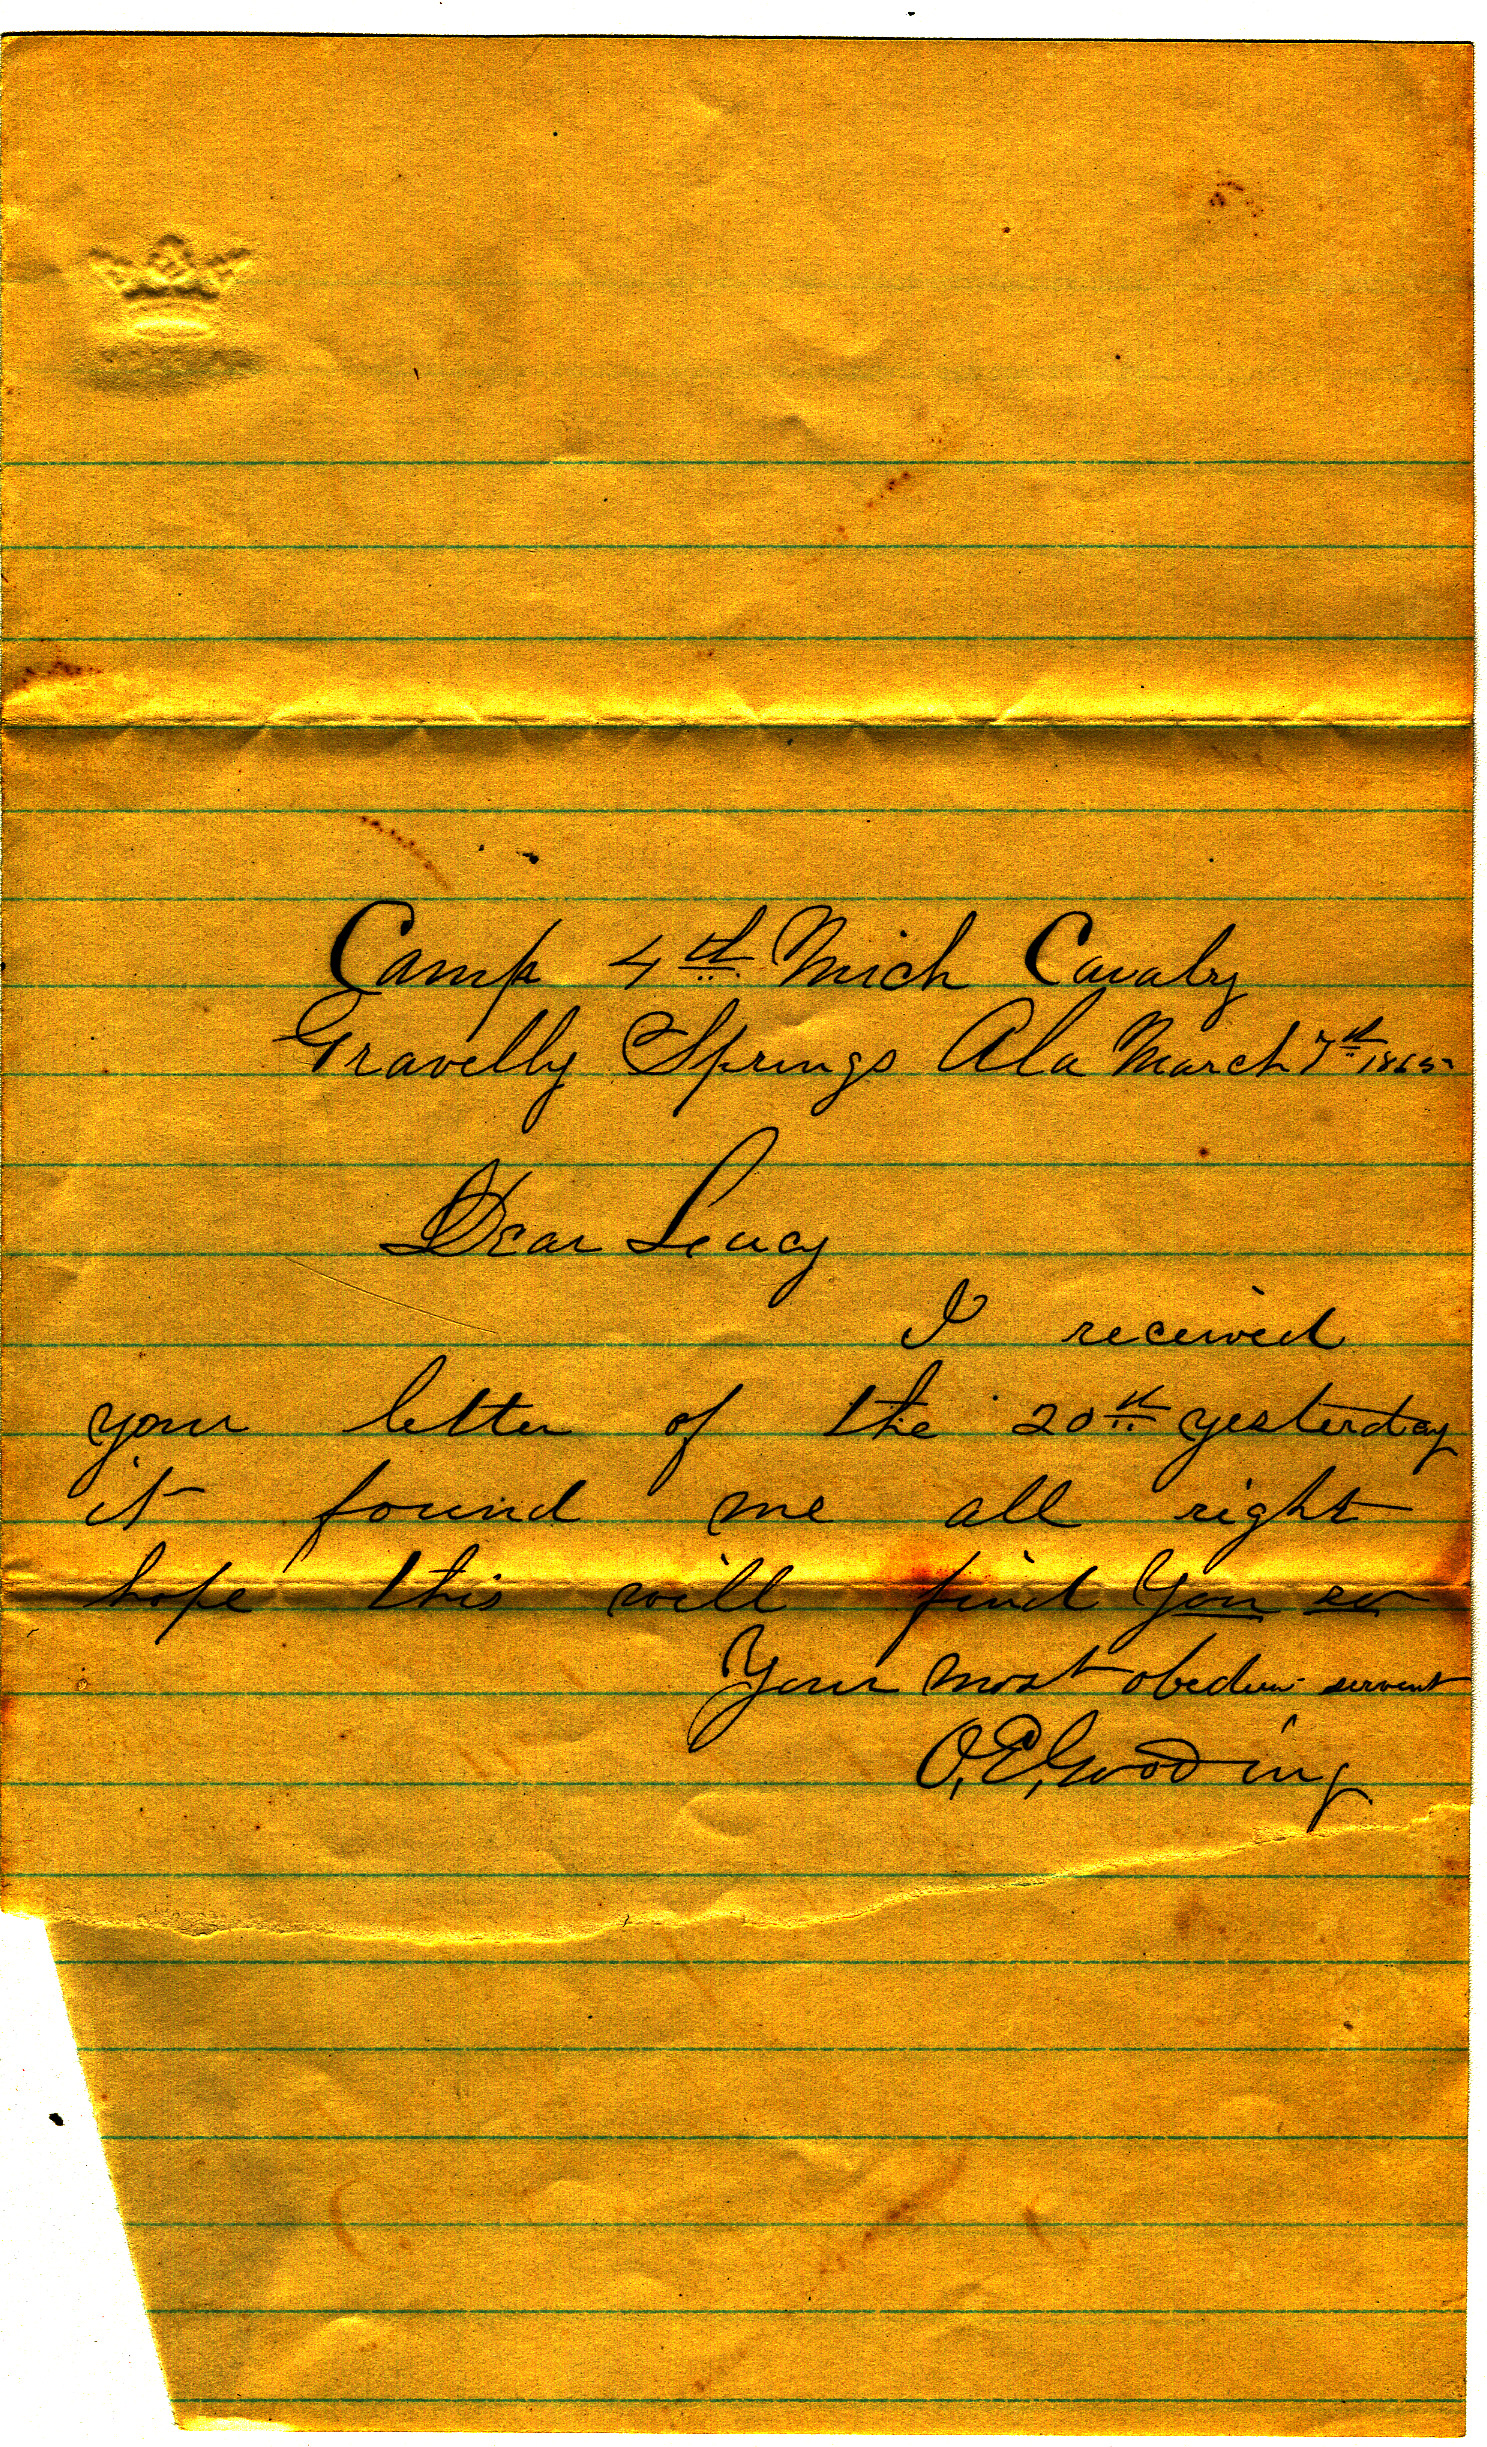 Camp 4th Mich Cavalry
Gravelly Springs Ala March 7th 1865
Dear Lucy
I received
your letter of the 20th yesterday
it found me all right
hope this will find You so
Your most obedien servent
O. E. Gooding